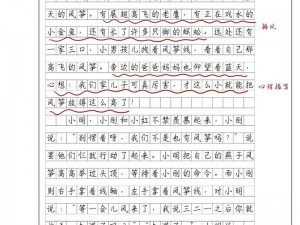 天的风筝。有展翅高飞的老鹰，有正在戏水的
小金鱼，还有长了许多只脚的蜈蚣。远处还有
一家三口，小男孩儿拽着风筝线，看着自己那
高飞的风筝。旁边的爸爸妈妈也仰望着蓝天，
心想：我们家儿子可真厉害，才这么小就能把
风筝放得这么高了！
小刚、小刚和小红不禁羡慕起来，小刚
说：“别愣着呀，我们不是也有风筝吗？”说
罢他们仨就行动了起来。小明把自己的燕子风
筝高高举过头顶，等待着小刚的命令。而小刚
则右手拿着线轴，左手拿着风筝线，对小明
说：“等一会儿风来了，我说三二一之后你就
排比
心理描写